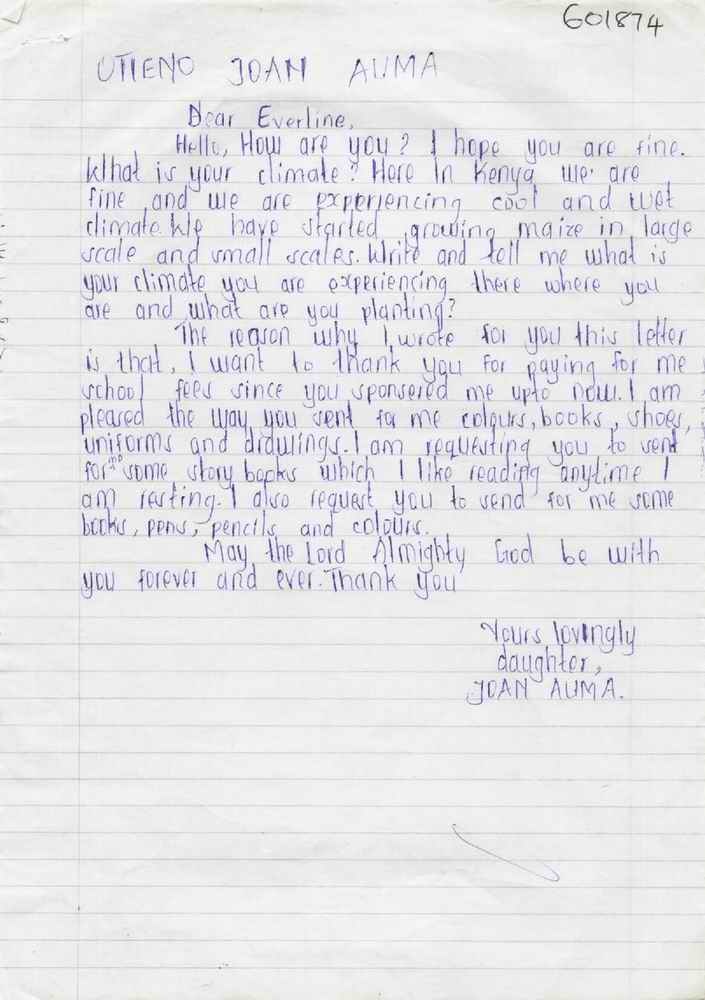 G01874
OTIENO JOAN AUMA
Dear Everline,
Hello, How are you? I hope you are fine.
What is your climate? Here In Kenya we are
fine and we are experiencing cool and wet
climate. We have started growing maize in large
scale and small scales. Write and tell me what is
your climate you are experiencing there where you
are and what are you planting?
The reason why I wrote for you this letter
is that, I want to thank you for paying for me
school fees since you sponsered me upto now. I am
pleased the way you sent for me colours, books, shoes,
uniforms and drawings. I am requesting you to sent
for me some story books which I like reading anytime I
am resting. I also request you to send for me some
books, pens, pencils and colours.
May the Lord Almighty God be with
you forever and ever. Thank you
Yours lovingly
daughter,
JOAN AUMA.